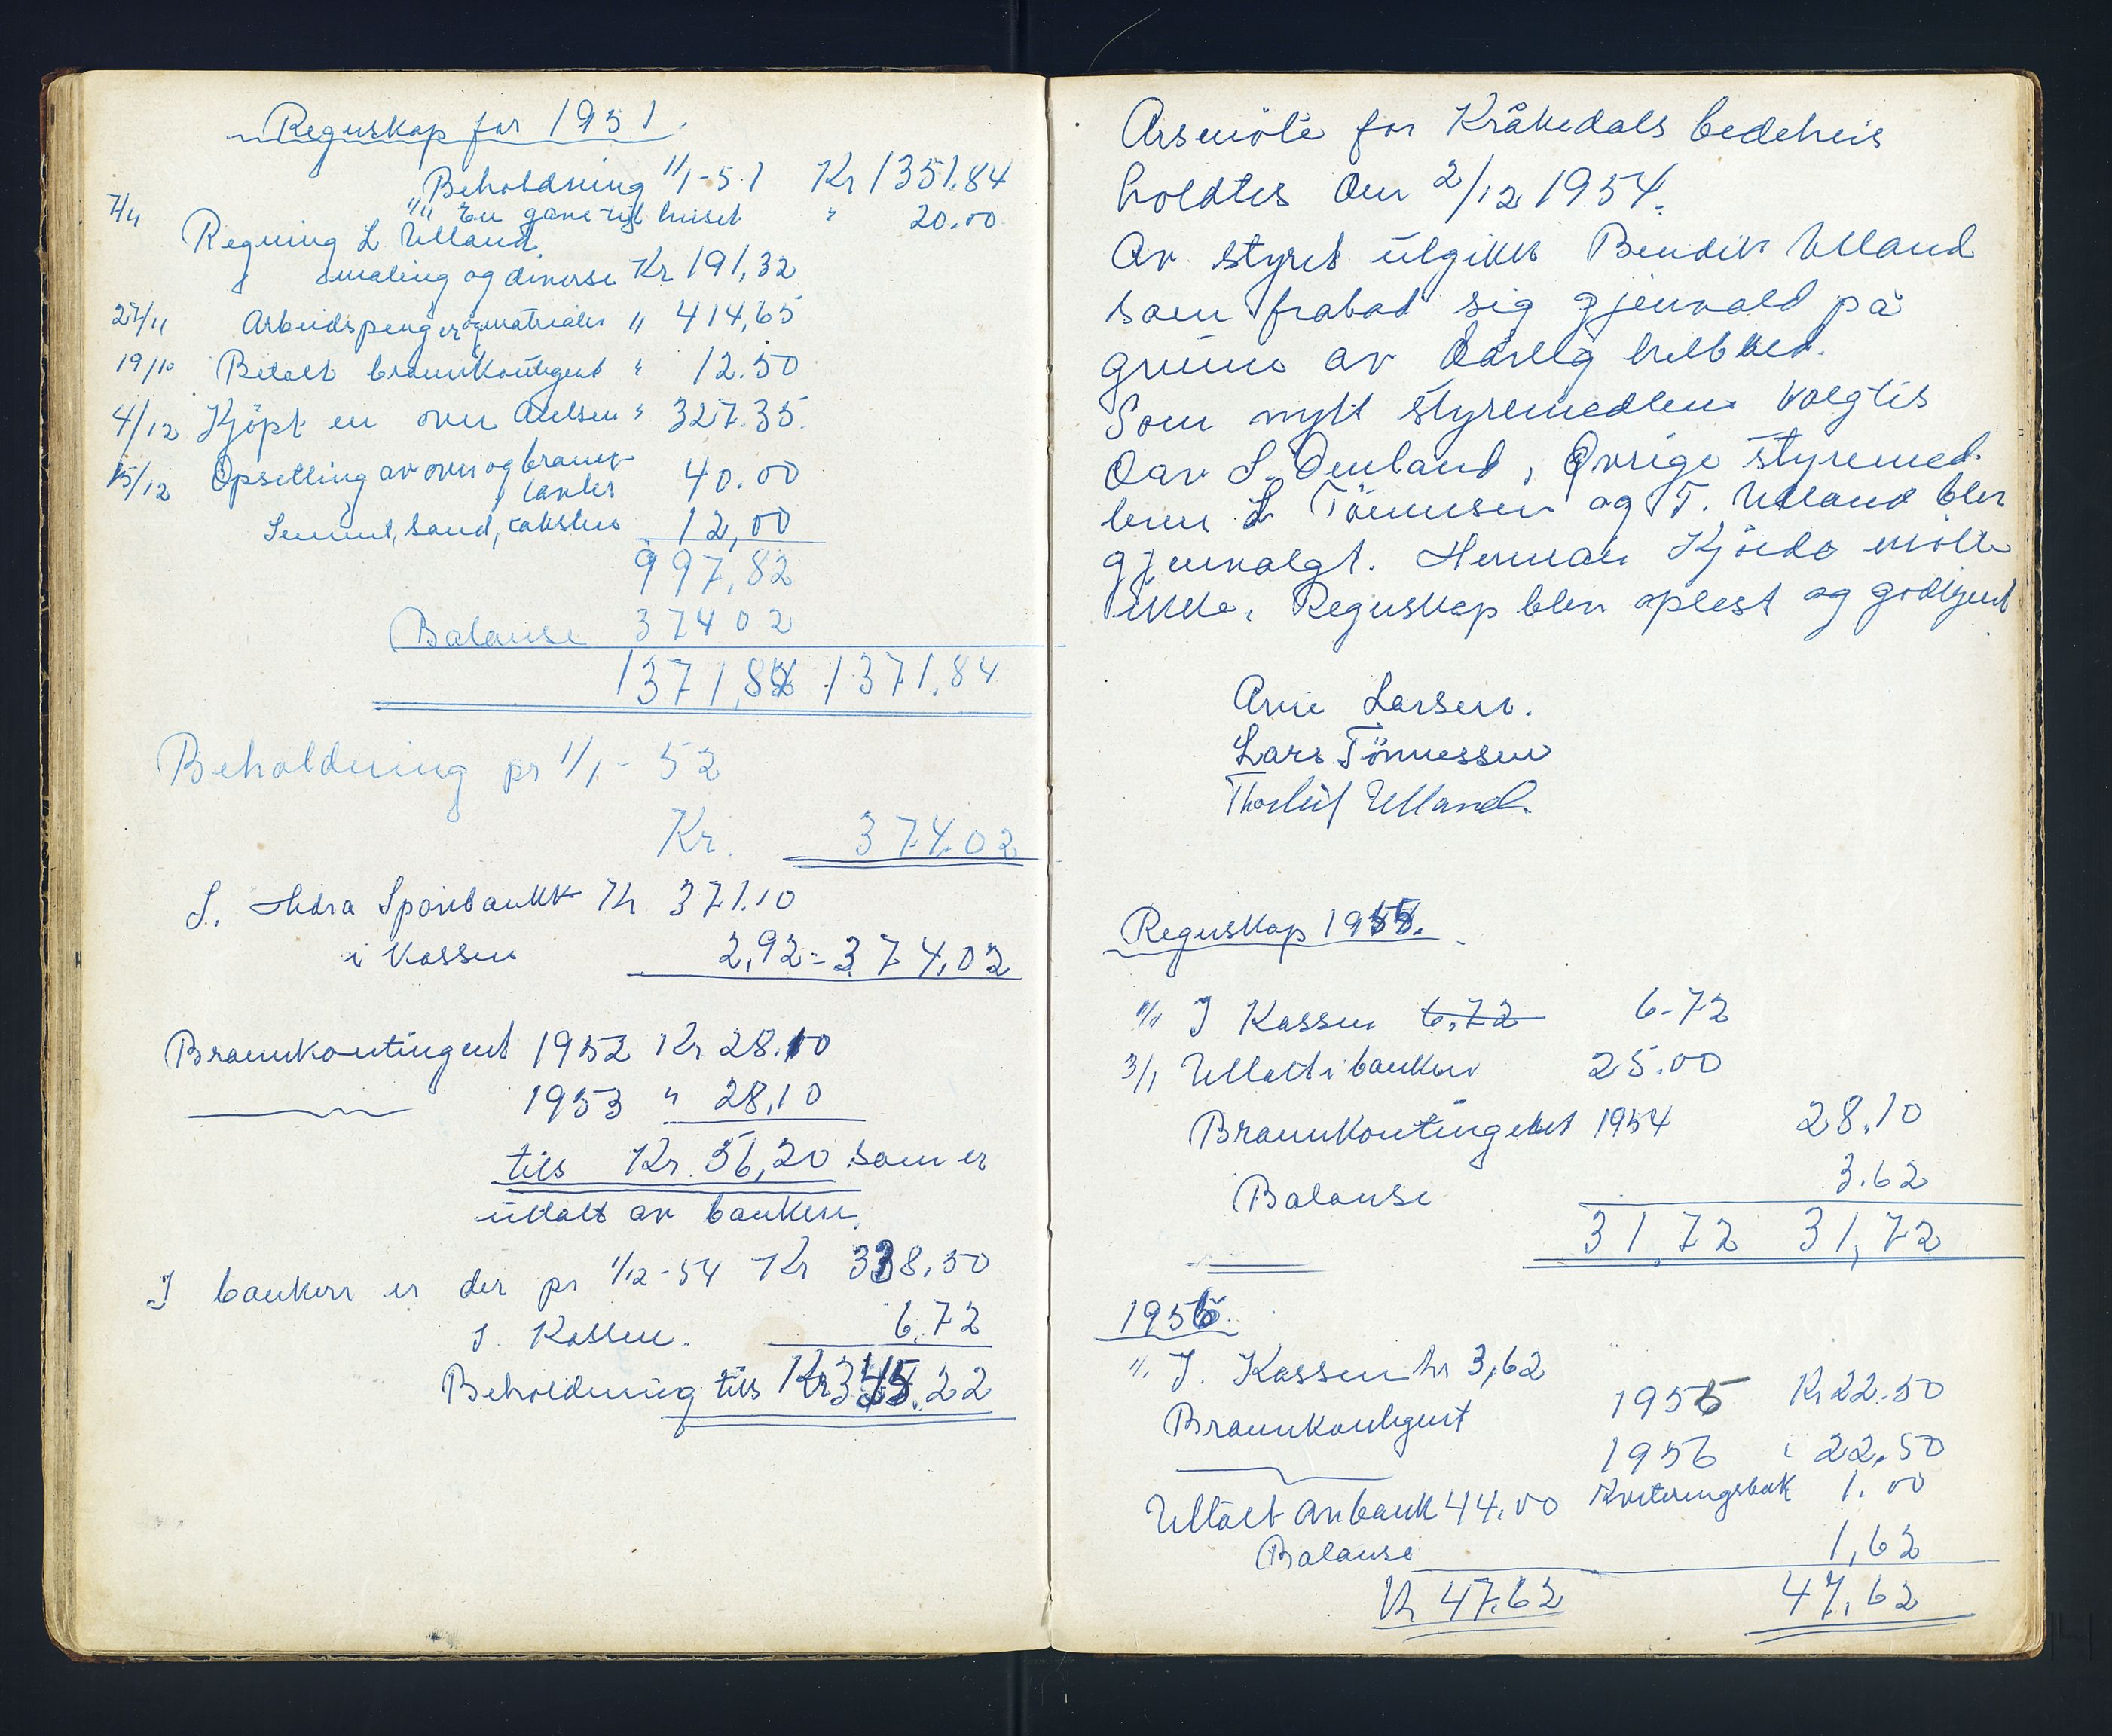 Regnskap for 1951.
Beholdning 1/1-51 Kr 1351.84
7/4 "" En gave til huset " 20.00
Regning L Ulland
maling og diverse Kr 191,32
27/11 Arbeidspenger og matrialer " 414,65
19/10 Betalt brannkontigent " 12.50
4/12 Kjöpt en ovn " 327.35.
15/12 Opsetting av ovn og brann- 40.00
Sement, sand, takstein 12,00
997,82
Balanse 37402
1371,84 1371.84
Beholdning pr 1/1- 52
Kr. 374.02
S. Hidra Sparebankk Kr 371.10
i Kassen 2,92 = 374,02
Brannkontingent 1952 Kr 28.10
1953 " 28,10
tils Kr. 56,20 som er
uttatt av banken.
I banken er der pr 1/12-54 Kr 338,50
I Kassen. 6.72
Beholdning tils Kr 345.22
Årsmöte for Kråkedals bedehus
holdtes den 2/12 1954.
Av styret utgikk Bendik Ulland
som frabad sig gjenvald på
grunn av dårlig helbked.
Som nytt styremedlem valgtes
Oav S. Penland, Övrige styremed-
lem L Tönnesen og T. Ulland blev
gjenvalgt. Herman Kjörbo mötte
ikke. Regnskap blev oplest og godkjent
Arne Larsen.
Lars Tönnessen
Thorleif Ulland.
Regnskap 1955.
1/1 I Kassen 6.72 6-72
3/1 Uttatt i banken 25.00
Brannkontingent 1954 28.10
Balanse 3.62
31,72 31,72
1956.
" I. Kassen kr 3,62
Brannkontigent 1955 Kr 22.50
1956 " 22,50
Uttatt av bank 44.00 Kviteringsbok 1.00
Balanse 1,62
Kr 47.62 47,62